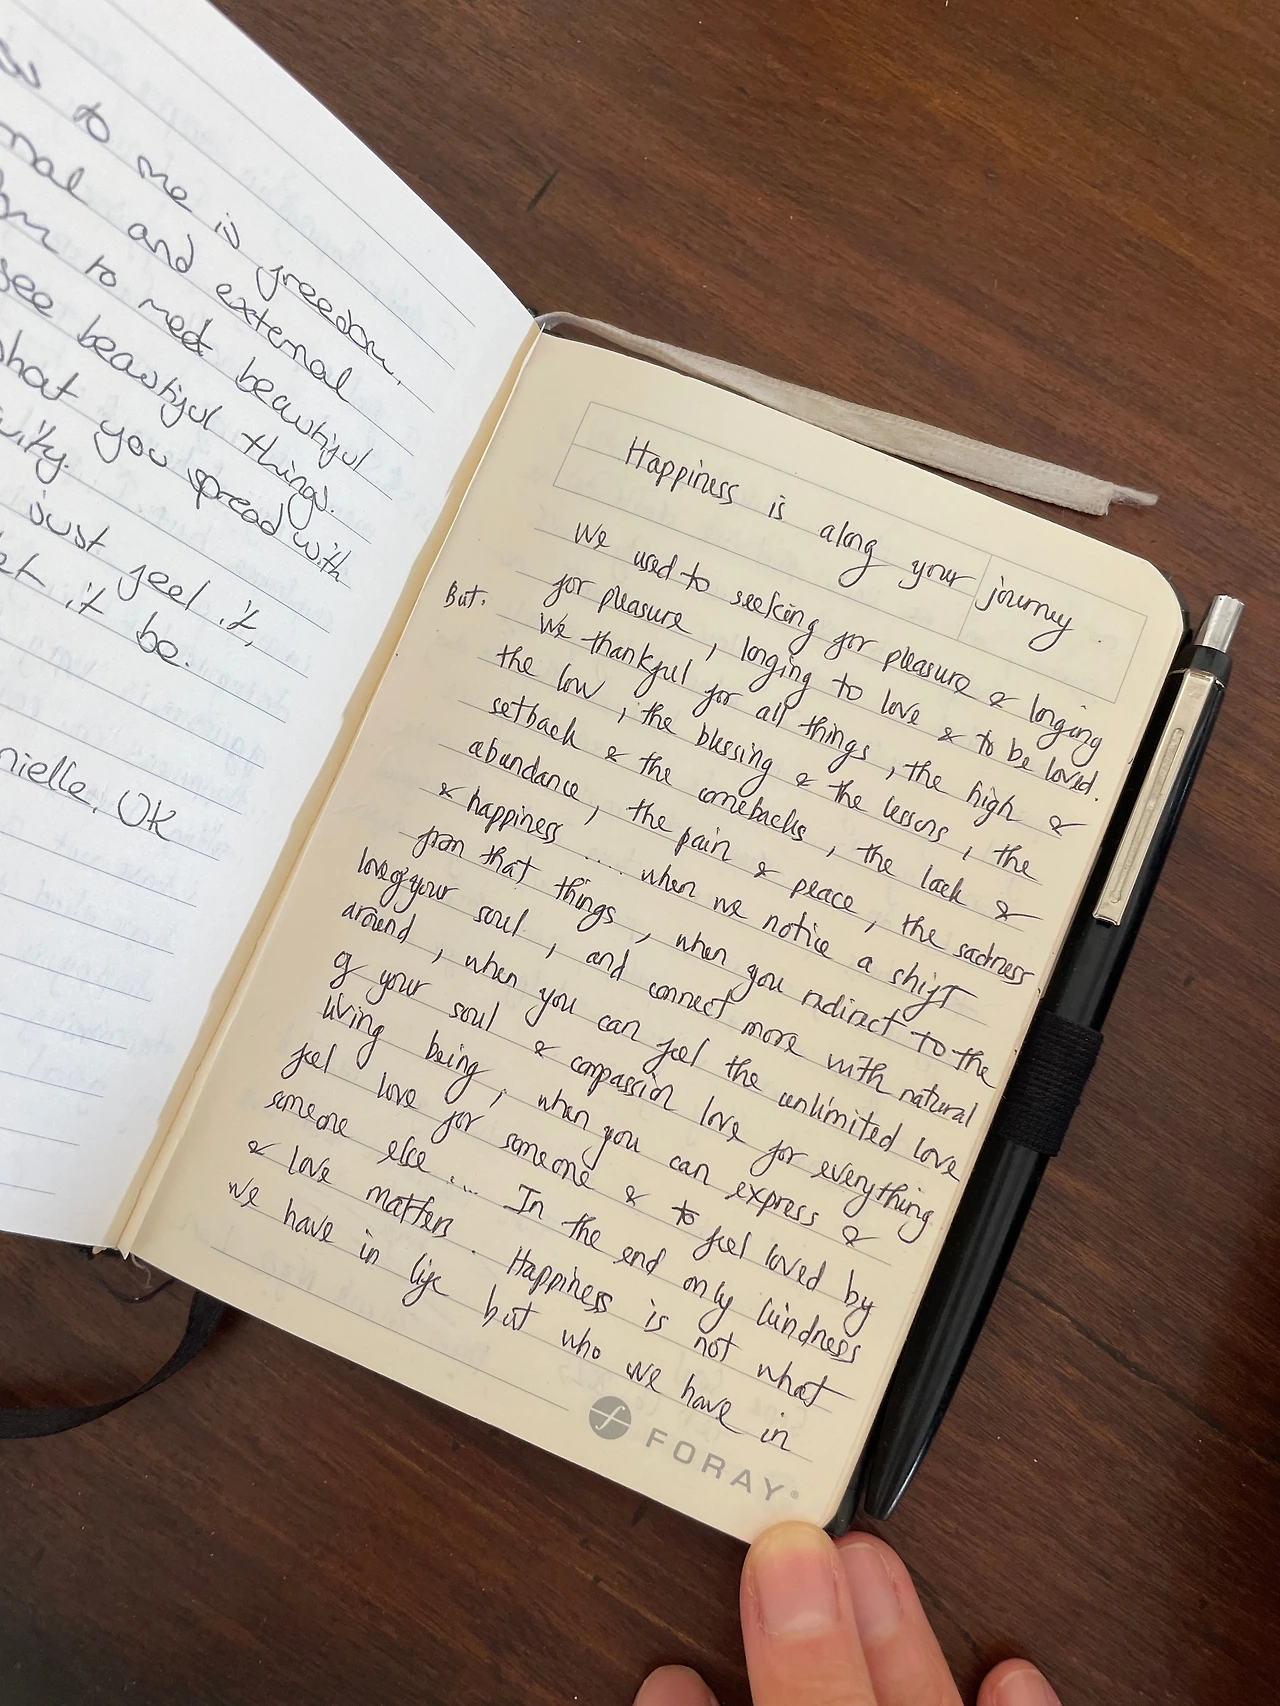 to me is freedom.
and external
to meet beautiful
see beautiful things.
what you spread with
just feel it,
it be.
UK
Happiness is along your journey.
We used to seeking for pleasure & longing
for pleasure, longing to love & to be loved.
But. We thankful for all things, the high &
the low, the blessing & the lessons, the
setback & the comebacks, the lack &
abundance, the pain & peace, the sadness
& happiness .... when we notice a shift
from that things, when you redirect to the
love of your soul, and connect more with natural
around, when you can feel the unlimited love
of your soul & compassion love for everything
living being, when you can express &
feel love for someone & to feel loved by
someone else.... In the end only kindness
& love matters. Happiness is not what
we have in life but who we have in
FORAY®